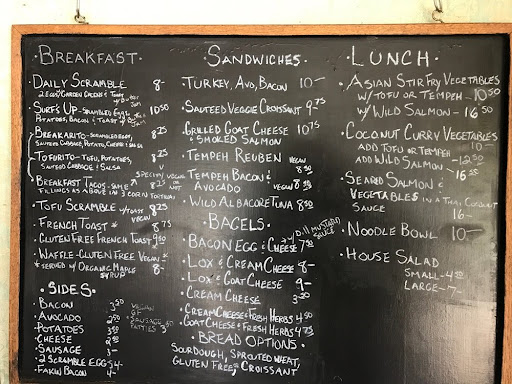 ·BREAKFAST·
·DAILY SCRAMBLE 8-
2 EGGS, GARDEN GREENS & TOAST
·SURF'S UP-SCRAMBLED EGGS, 10 50
POTATOES, BACON & TOAST
·BREAKARITO-SCRAMBLED EGGS, 8 25
SAUTEED CABBAGE, POTATO, CHEESE & SALSA
·TOFURITO-TOFU, POTATOES, 8 25
SAUTEED CABBAGE & SALSA
·BREAKFAST TACOS-SAME 8 25
FILLINGS AS ABOVE IN 3 CORN TORTILLAS
SPECIFY VEGAN
OR NOT
·TOFU SCRAMBLE W/TOAST 8 25
VEGAN
·FRENCH TOAST* 8 75
·GLUTEN FREE FRENCH TOAST 9 50
·WAFFLE-GLUTEN FREE VEGAN*
*SERVED W/ORGANIC MAPLE 8-
SYRUP
·SIDES·
·BACON 3 50
·AVOCADO 2 50
·POTATOES 3 50
·CHEESE 2 50
·SAUSAGE 3-
·2 SCRAMBLE EGGS 4-
·FAKIN BACON 4-
VEGAN
GF
SAUSAGE
PATTIES 3 50
SANDWICHES
·TURKEY, AVO, BACON 10-
·SAUTEED VEGGIE CROISSANT 9 75
·GRILLED GOAT CHEESE 10 75
& SMOKED SALMON
·TEMPEH REUBEN VEGAN 8 50
·TEMPEH BACON &
AVOCADO VEGAN 8 50
·WILD ALBACORE TUNA 8 50
·BAGELS·
·BACON EGG & CHEESE 7 50
W/DILL MUSTARD
SAUCE
·LOX & CREAM CHEESE 8-
·LOX & GOAT CHEESE 9-
·CREAM CHEESE 3 50
·CREAM CHEESE & FRESH HERBS 4 50
·GOAT CHEESE & FRESH HERBS 4 75
·BREAD OPTIONS·
SOURDOUGH, SPROUTED WHEAT,
GLUTEN FREE & CROISSANT
·LUNCH·
·ASIAN STIR FRY VEGETABLES
W/TOFU OR TEMPEH-10 50
W/WILD SALMON-16 50
·COCONUT CURRY VEGETABLES
10-
ADD TOFU OR TEMPEH-12 50
ADD WILD SALMON-16 50
·SEARED SALMON &
VEGETABLES IN A THAI COCONUT
SAUCE 16-
·NOODLE BOWL 10-
·HOUSE SALAD
SMALL-4 50
LARGE-7-